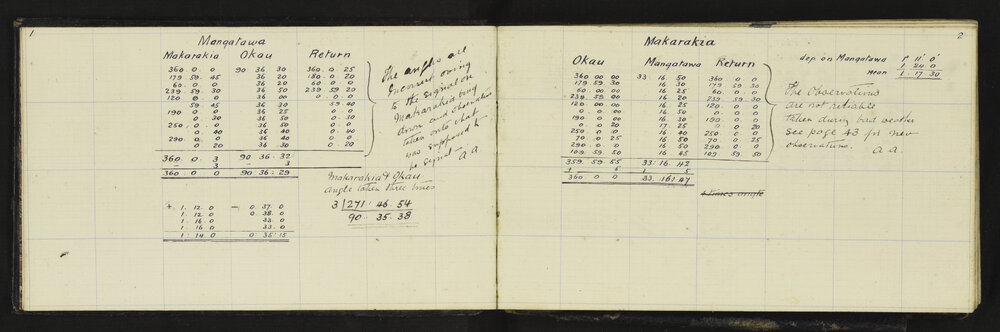 1
Mangatawa
Makarakia Okau Return
360 0 0 90 36 30 360 0 25
179 59 45 36 20 180 0 20
60 0 0 36 20 60 0 0
239 59 30 36 50 239 59 20
120 0 0 36 00 0 0 0
59 45 36 30 59 40
190 0 0 36 25 0 0
0 30 36 50 0 30
250 0 0 36 50 0 0
0 40 36 40 0 40
290 0 0 36 40 0 0
0 20 36 30 0 20
360 0 3 90 36 32
3 3
360 0 0 90 36 29
The angles are
Incorrect owing
to the signal on
Makarakia being
down and observations
taken onto what
was supposed to
be signal
a a
Makarakia & Okau
angle taken three times
3 | 271 46 54
90 35 38
+ 1 12 0 - 0 37 0
1 12 0 0 38 0
1 16 0 33 0
1 16 0 33 0
1 14 0 0 35 15
2
Makarakia
Okau Mangatawa Return
360 00 00 33 16 50 360 0 0
179 59 30 16 30 179 59 30
60 00 00 16 25 60 0 0
239 59 00 16 20 239 59 30
120 00 00 16 25 120 0 0
0 00 16 35 0 0
190 00 00 16 30 190 0 0
0 0 20 17 25 0 0 20
250 0 0 16 40 250 0 0
70 0 25 16 50 70 0 25
290 0 0 16 290 0 0
109 59 50 16 65 109 59 50
359 59 55 33 16 42
5 5
360 0 0 33 16 47
4 times angle
dep on Mangatawa 1° 11' 0
1 24 0
mean 1 17 30
The Observations
are not reliable
taken during bad weather
see page 43 for new
observations.
a a.